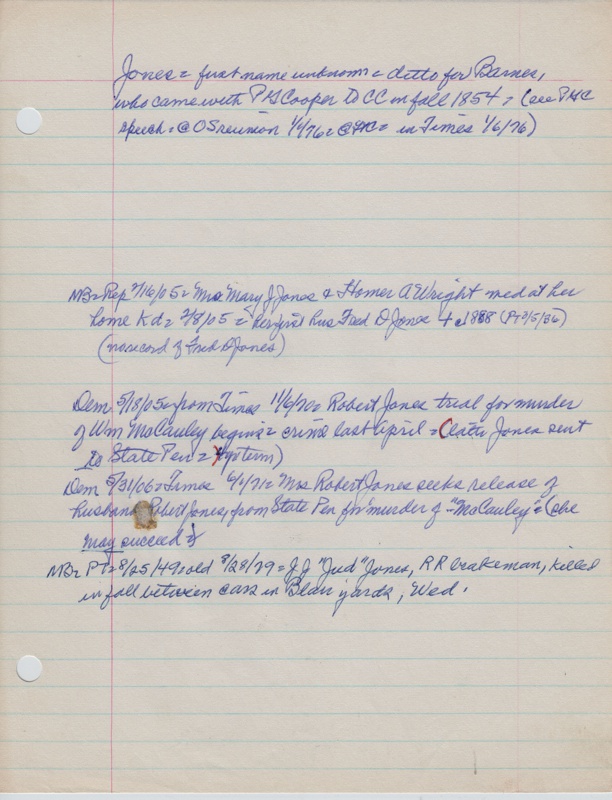 Jones = first name unknown = ditto for Barnes,
who came with P G Cooper to CC in fall 1854 = (see PGC
speech = @ OS reunion 1/1/76 = @ = in Times 1/6/76)
MB = Rep 2/16/05 = Mrs Mary J Jones & Homer A Wright med at her
home Kd = 2/8/05 = her first hus Fred D Jones + c1888 (PT 3/5/36)
(no record of Fred D Jones)
Dem 5/18/05 = from Times 11/6/70 = Robert Jones trial for murder
of Wm McCauley begins = crime last april = (later Jones sent
to State Pen = term)
Dem 5/31/06 = Times 6/1/71 = Mrs Robert Jones seeks release of
husband Robert Jones, from State Pen for murder of "McCauley" = (she
may succeed =)
MB = PT = 8/25/49 = old 8/28/79 = J J "Jud" Jones, RR brakeman, killed
in fall between cars in Blair yards, Wed.